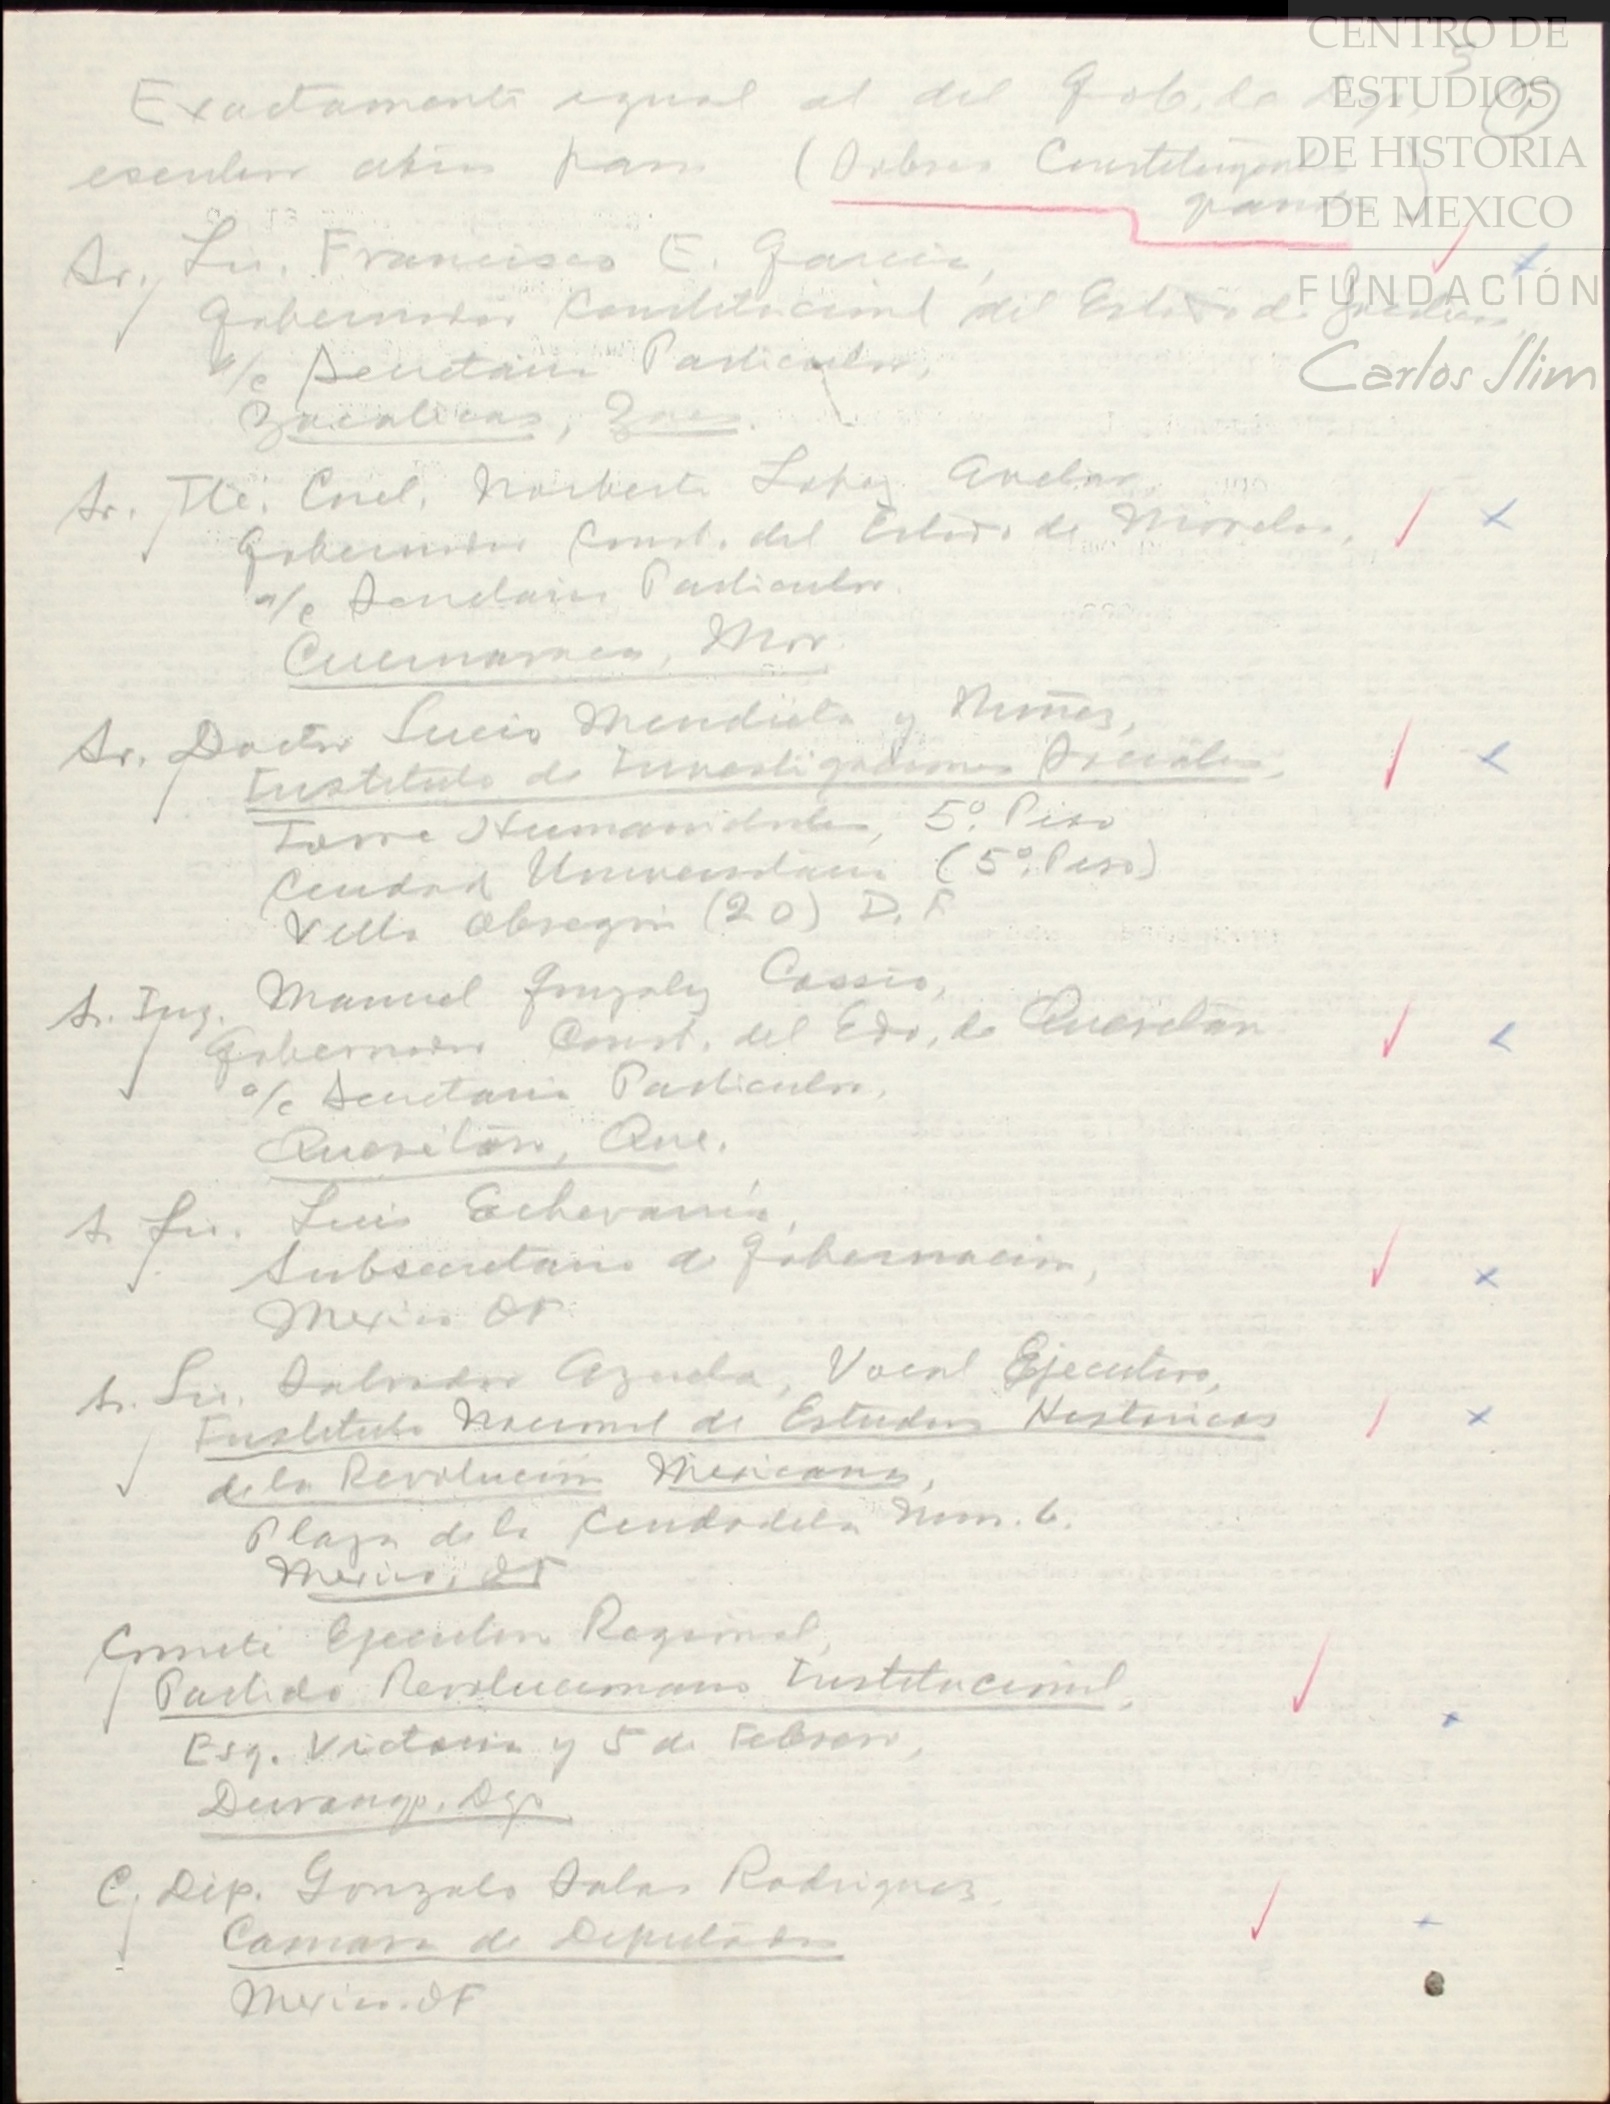 CENTRO DE
ESTUDIOS
DE HISTORIA
DE MEXICO
FUNDACIÓN
Carlos Slim
Exactamente igual al del Gob. de Dgo.
escribir otros para (Sobres Constituyentes
grandes)
Sr. Lic. Francisco E. García,
Gobernador Constitucional del Estado de Zacatecas,
a/c Secretario Particular,
Zacatecas, Zacs.
Sr. Tte. Corel. Norberto Lopez Avelar,
Gobernador Const. del Estado de Morelos,
a/c Secretario Particular.
Cuernavaca, Mor.
Sr. Doctor Lucio Mendieta y Nuñez,
Instituto de Investigaciones Sociales,
Torre Humanidades, 5º. Piso
Ciudad Universitaria (5º. Piso)
Villa Obregón (20) D. F
Sr. Ing. Manuel Gonzalez Cossio,
Gobernador Const. del Edo. de Querétaro
a/c Secretario Particular,
Querétaro, Que.
Sr. Lic. Luis Echevarría,
Subsecretario de Gobernación,
Mexico DF
Sr. Lic. Salvador Azuela, Vocal Ejecutivo,
Instituto Nacional de Estudios Historicos
de la Revolución Mexicana,
Plaza de la Ciudadela Num. 6.
Mexico, DF
Comité Ejecutivo Regional,
Partido Revolucionario Institucional,
Esq. Victoria y 5 de Febrero,
Durango, Dgo
C. Dip. Gonzalo Salas Rodriguez,
Camara de Diputados
Mexico. DF